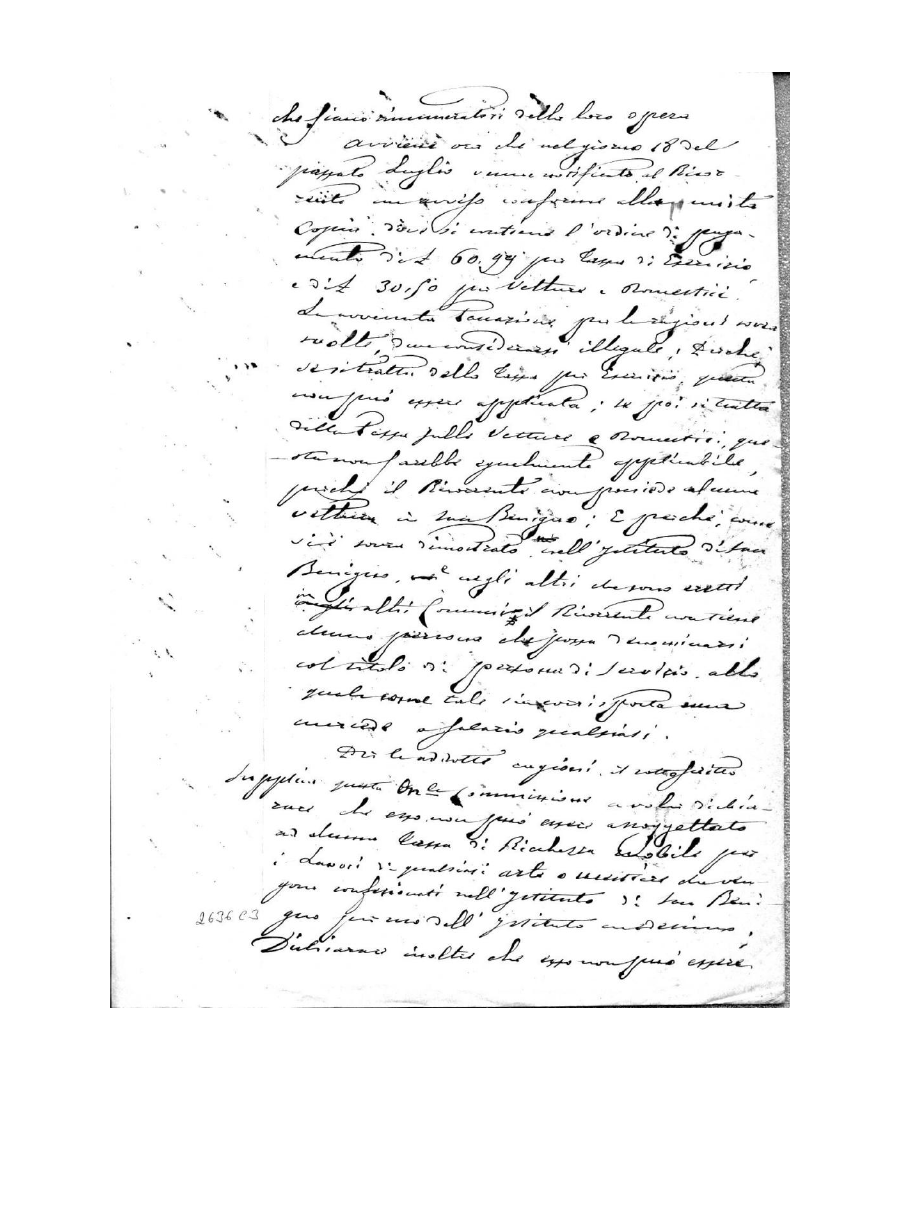 che siano rimuneratori della loro opera
Avviene ora che nel giorno 18 del
passato Luglio venne notificato al Ricor-
rente un avviso conforme alla unita
copia, dove si contiene l'ordine di paga-
mento di £ 60,99 per Tassa di Esercizio
e di £ 30,50 per Vetture e Domestici.
La avvenuta Tassazione per le ragioni sovra
svolte, deve considerarsi illegale; Perché,
se si tratta della Tassa per Esercizio, questa
non può essere applicata; se poi si tratta
della Tassa sulle Vetture e Domestici, que-
sta non sarebbe egualmente applicabile,
perché il Ricorrente non possiede alcuna
vettura in San Benigno; E perché, come
si è sovra dimostrato, nell'Istituto di San
Benigno, né negli altri che sono eretti
in altri Comuni il Ricorrente non tiene
alcuna persona che possa denominarsi
col titolo di persona di servizio, alla
quale come tale sia corrisposta una
mercede o salario qualsiasi.
Per le addotte cagioni, il sottoscritto
Supplica questa On.le Commissione a voler dichia-
rare che esso non può essere assoggettato
ad alcuna Tassa di Ricchezza mobile per
i Lavori di qualsiasi arte o mestiere che ven-
gono confezionati nell'Istituto di San Beni-
gno per uso dell'Istituto medesimo.
2636 C3
Dichiarare inoltre che esso non può essere